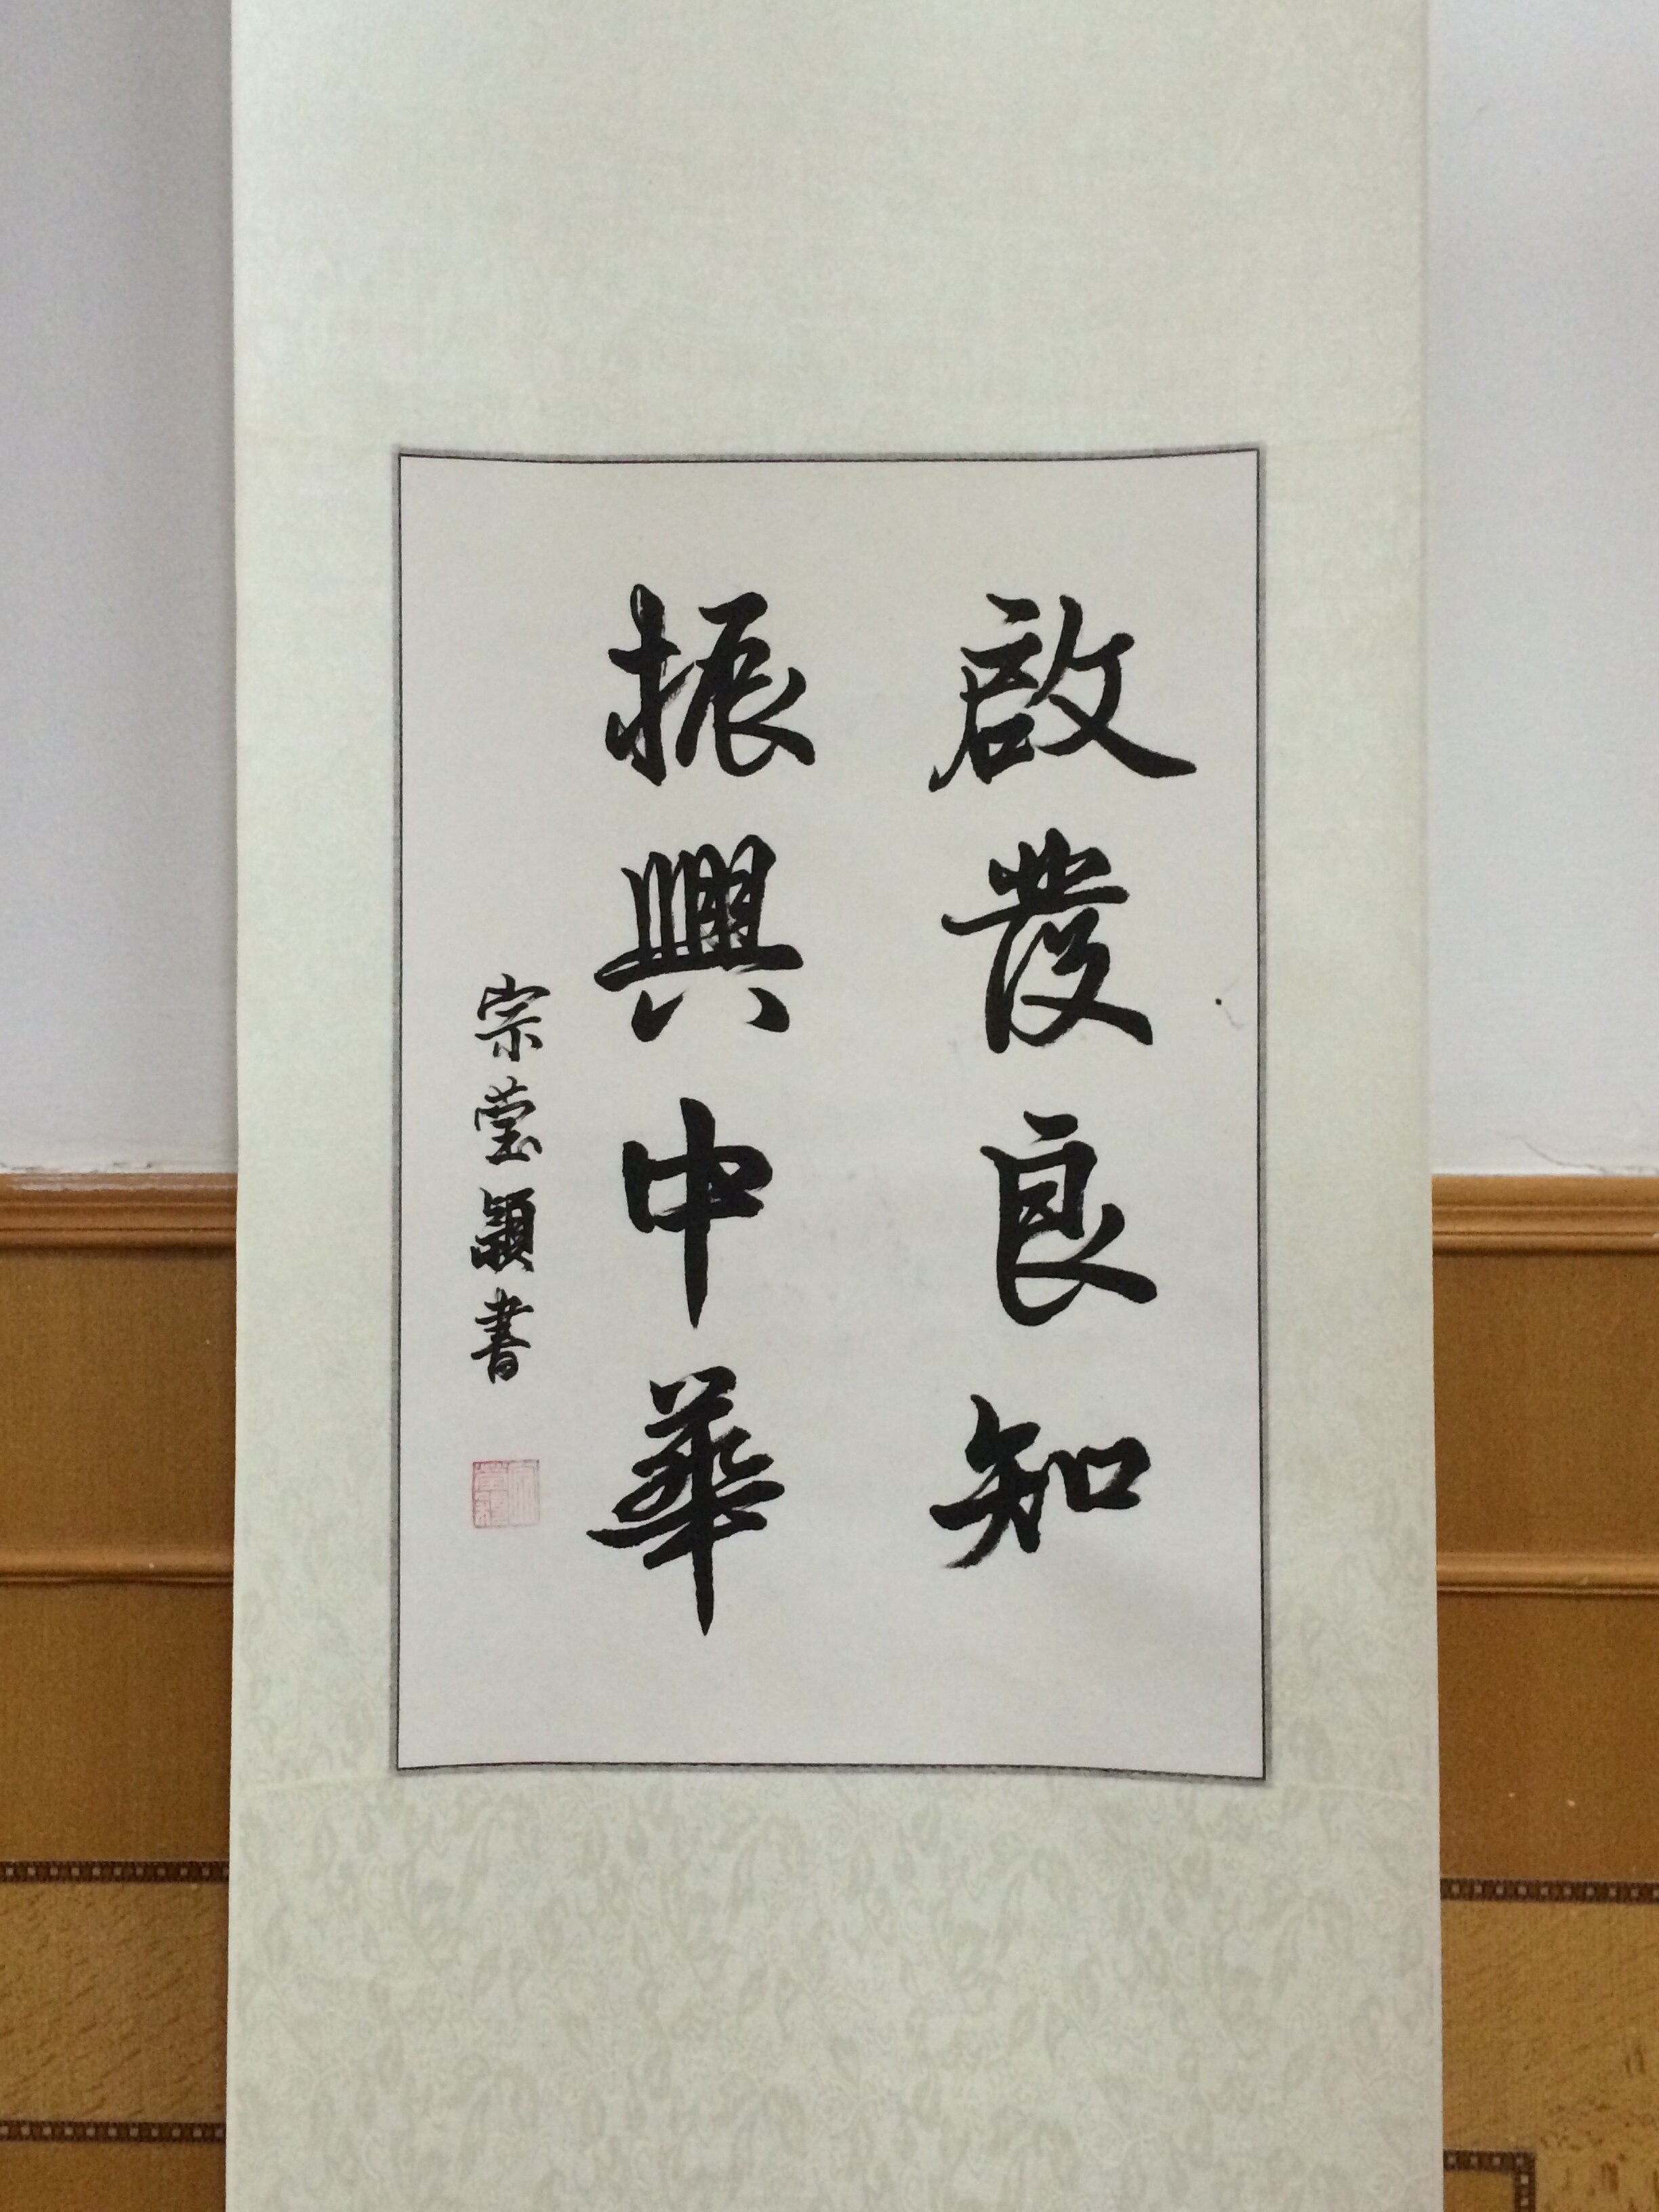 啟發良知
振興中華
宗瑩穎書